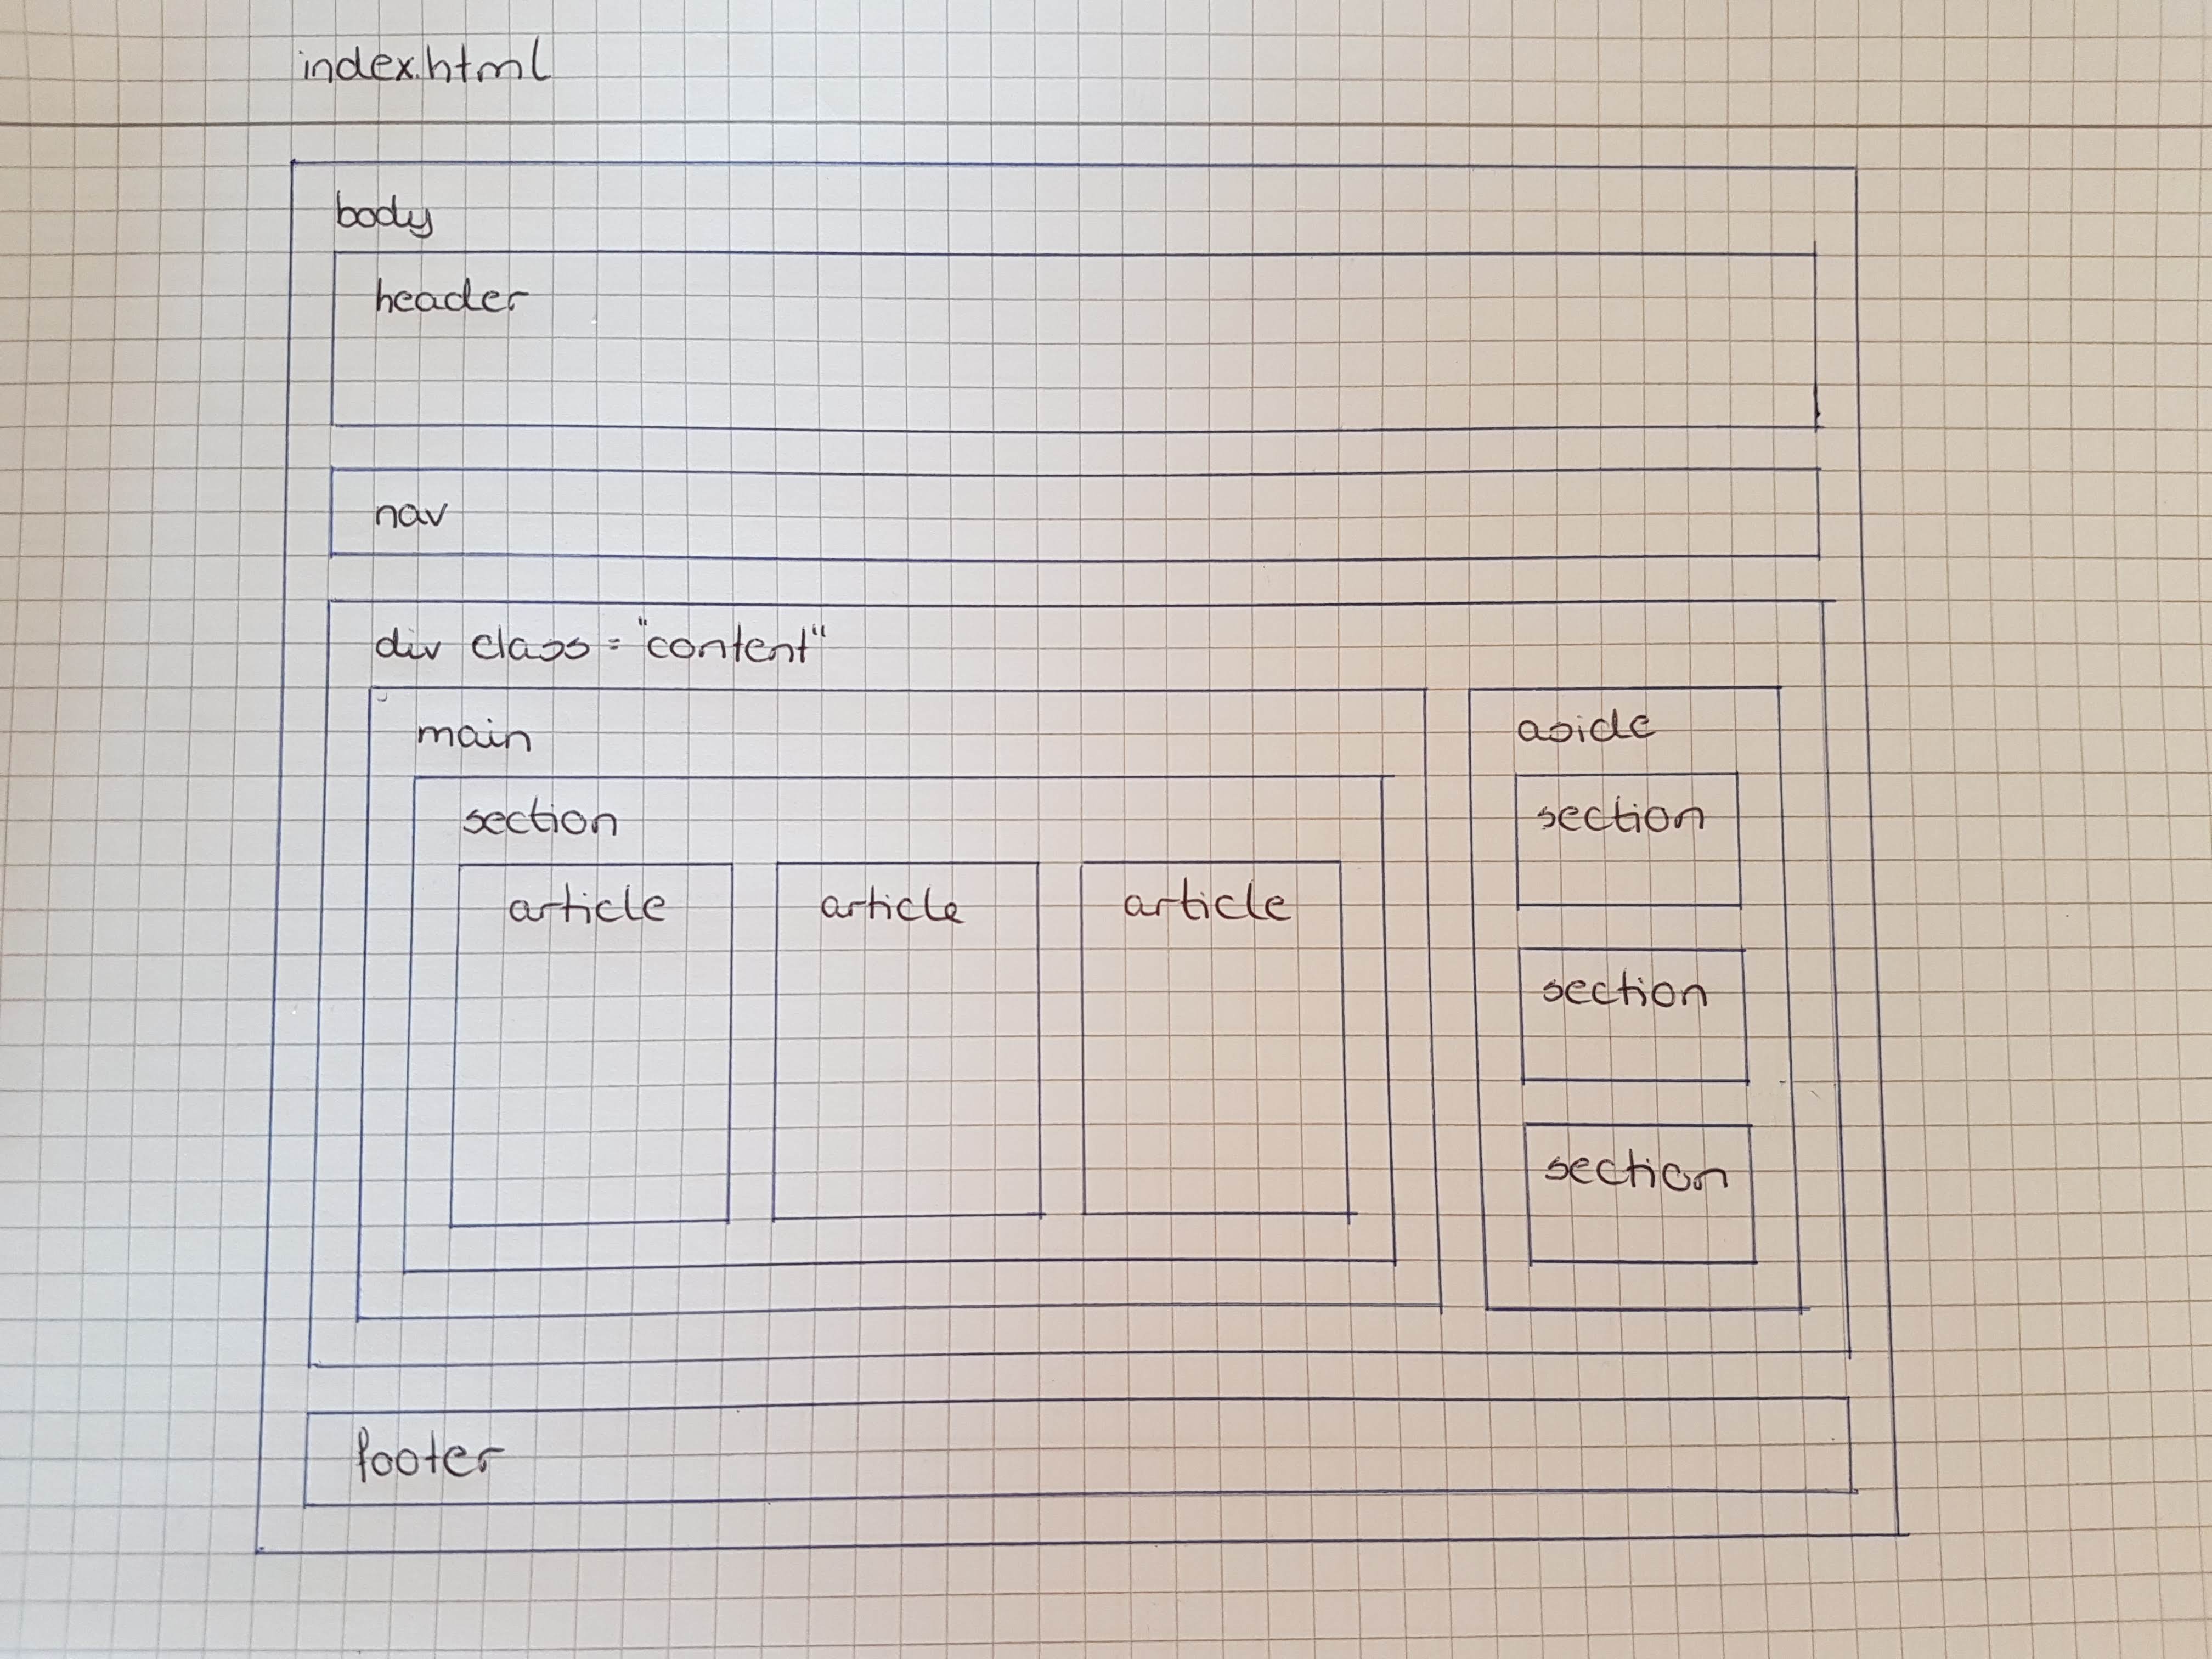 index.html
body
header
nav
div class = "content"
main
section
article article article
aside
section
section
section
footer